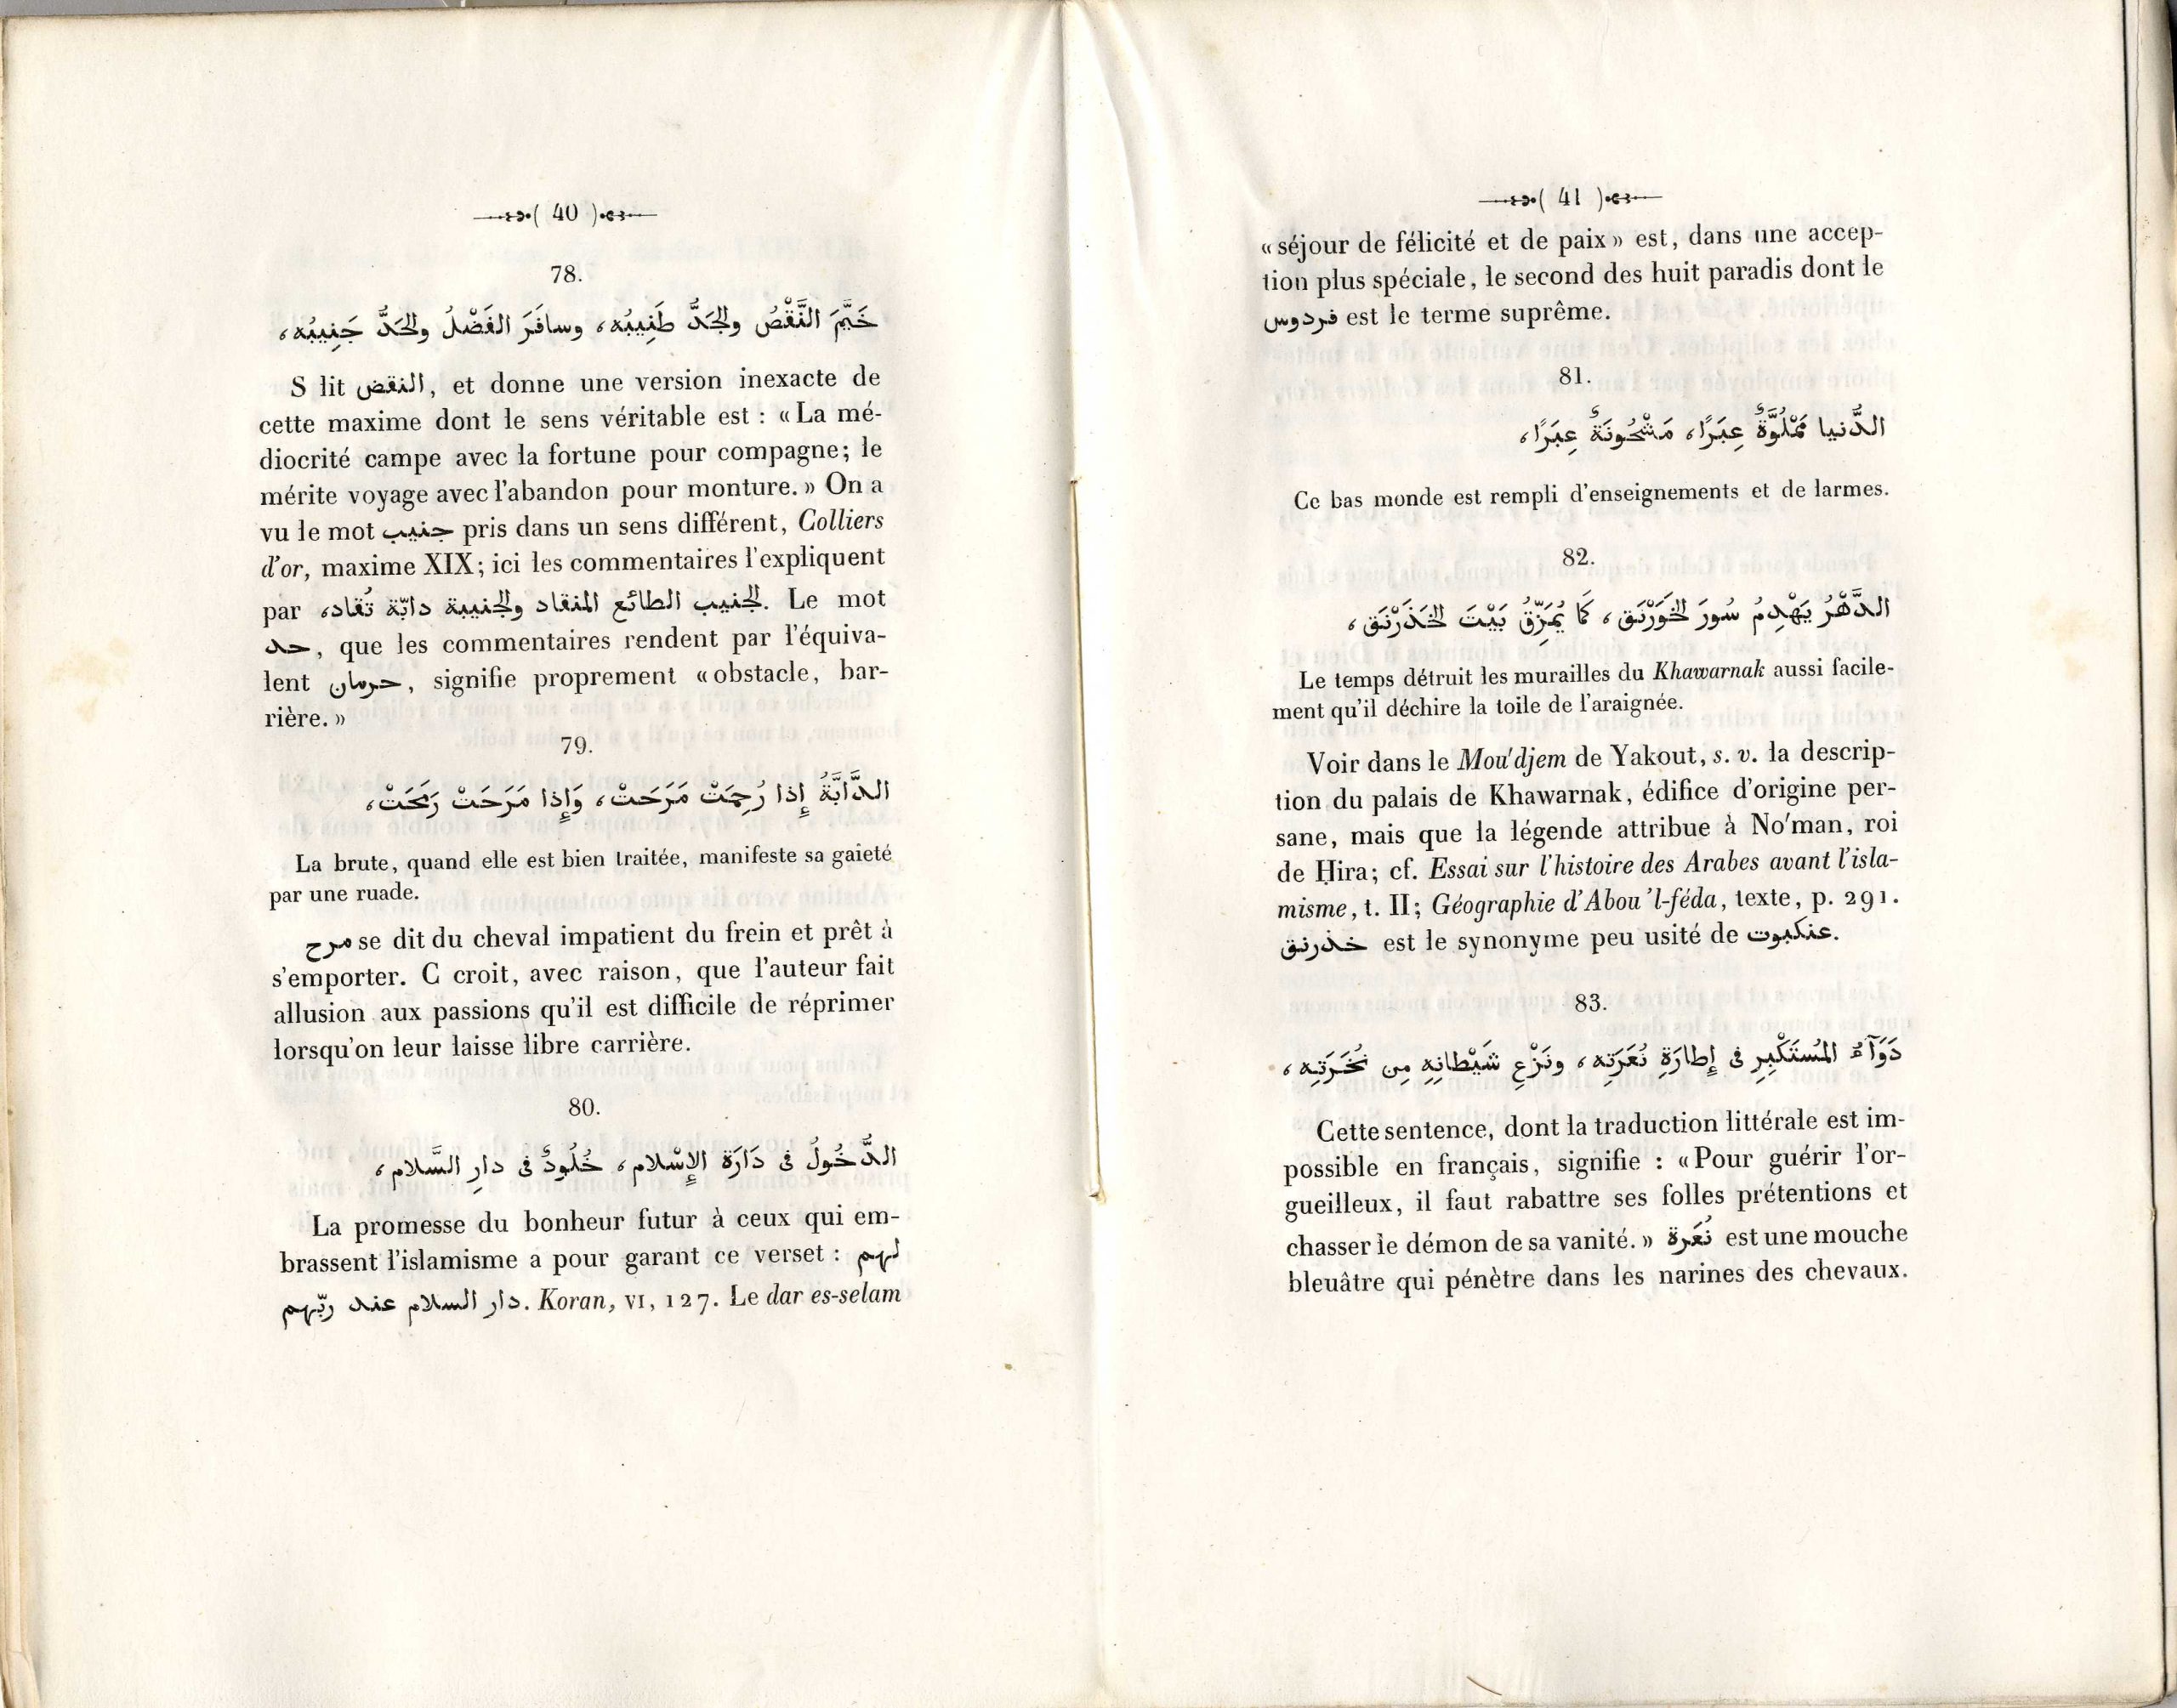 ( 40 )
78.
خَيَّمَ النَّقْصُ والجَدُّ طَنِيبُه، وسافَرَ الفَضْلُ والحَدُّ جَنِيبُه،
S lit النقض, et donne une version inexacte de
cette maxime dont le sens véritable est : « La mé-
diocrité campe avec la fortune pour compagne; le
mérite voyage avec l'abandon pour monture. » On a
vu le mot جنيب pris dans un sens différent, Colliers
d'or, maxime XIX; ici les commentaires l'expliquent
par الجنيب الطائع المنقاد والجنيبة دابّة تُقاد،. Le mot
حد, que les commentaires rendent par l'équiva-
lent حرمان, signifie proprement « obstacle, bar-
rière. »
79.
الدَّابَّةُ إِذا رُحِمَتْ مَرَحَتْ، وَإِذا مَرَحَتْ رَمَحَتْ،
La brute, quand elle est bien traitée, manifeste sa gaieté
par une ruade.
مرح se dit du cheval impatient du frein et prêt à
s'emporter. C croit, avec raison, que l'auteur fait
allusion aux passions qu'il est difficile de réprimer
lorsqu'on leur laisse libre carrière.
80.
الدُّخُولُ فى دَارَة الإِسْلام، خُلُودٌ فى دارِ السَّلام،
La promesse du bonheur futur à ceux qui em-
brassent l'islamisme a pour garant ce verset : لهم
دار السلام عند ربّهم. Koran, VI, 127. Le dar es-selam
( 41 )
« séjour de félicité et de paix » est, dans une accep-
tion plus spéciale, le second des huit paradis dont le
فردوس est le terme suprême.
81.
الدُّنيا مَمْلُوَّةٌ عِبَرًا، مَشْحُونَةٌ عِبَرًا،
Ce bas monde est rempli d'enseignements et de larmes.
82.
الدَّهْرُ يَهْدِمُ سُورَ الخَوَرْنَق، كَما يُمَزِّقُ بَيْتَ الخَذَرْنَق،
Le temps détruit les murailles du Khawarnak aussi facile-
ment qu'il déchire la toile de l'araignée.
Voir dans le Mou'djem de Yakout, s. v. la descrip-
tion du palais de Khawarnak, édifice d'origine per-
sane, mais que la légende attribue à No'man, roi
de Ḥira; cf. Essai sur l'histoire des Arabes avant l'isla-
misme, t. II; Géographie d'Abou 'l-féda, texte, p. 291.
خذرنق est le synonyme peu usité de عنكبوت.
83.
دَوَآءُ المُسْتَكْبِرِ فى إِطارَةِ نُعَرَتِه، ونَزْعِ شَيْطانِهِ مِن نُخَرَتِه،
Cette sentence, dont la traduction littérale est im-
possible en français, signifie : « Pour guérir l'or-
gueilleux, il faut rabattre ses folles prétentions et
chasser le démon de sa vanité. » نُعَرة est une mouche
bleuâtre qui pénètre dans les narines des chevaux.